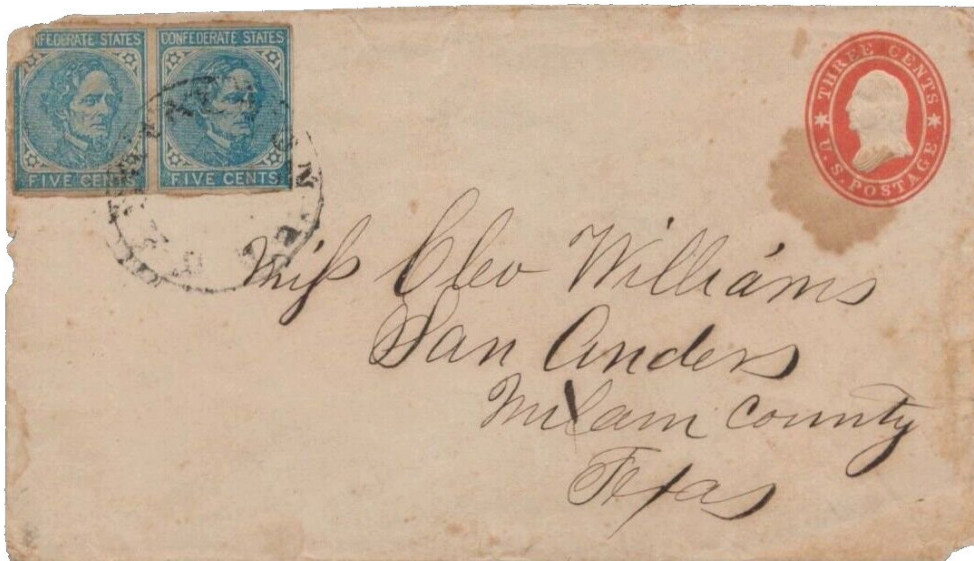 CONFEDERATE STATES CONFEDERATE STATES
FIVE CENTS FIVE CENTS
THREE CENTS
U.S. POSTAGE
Miss Cleo Williams
San Anders
Milam County
Texas